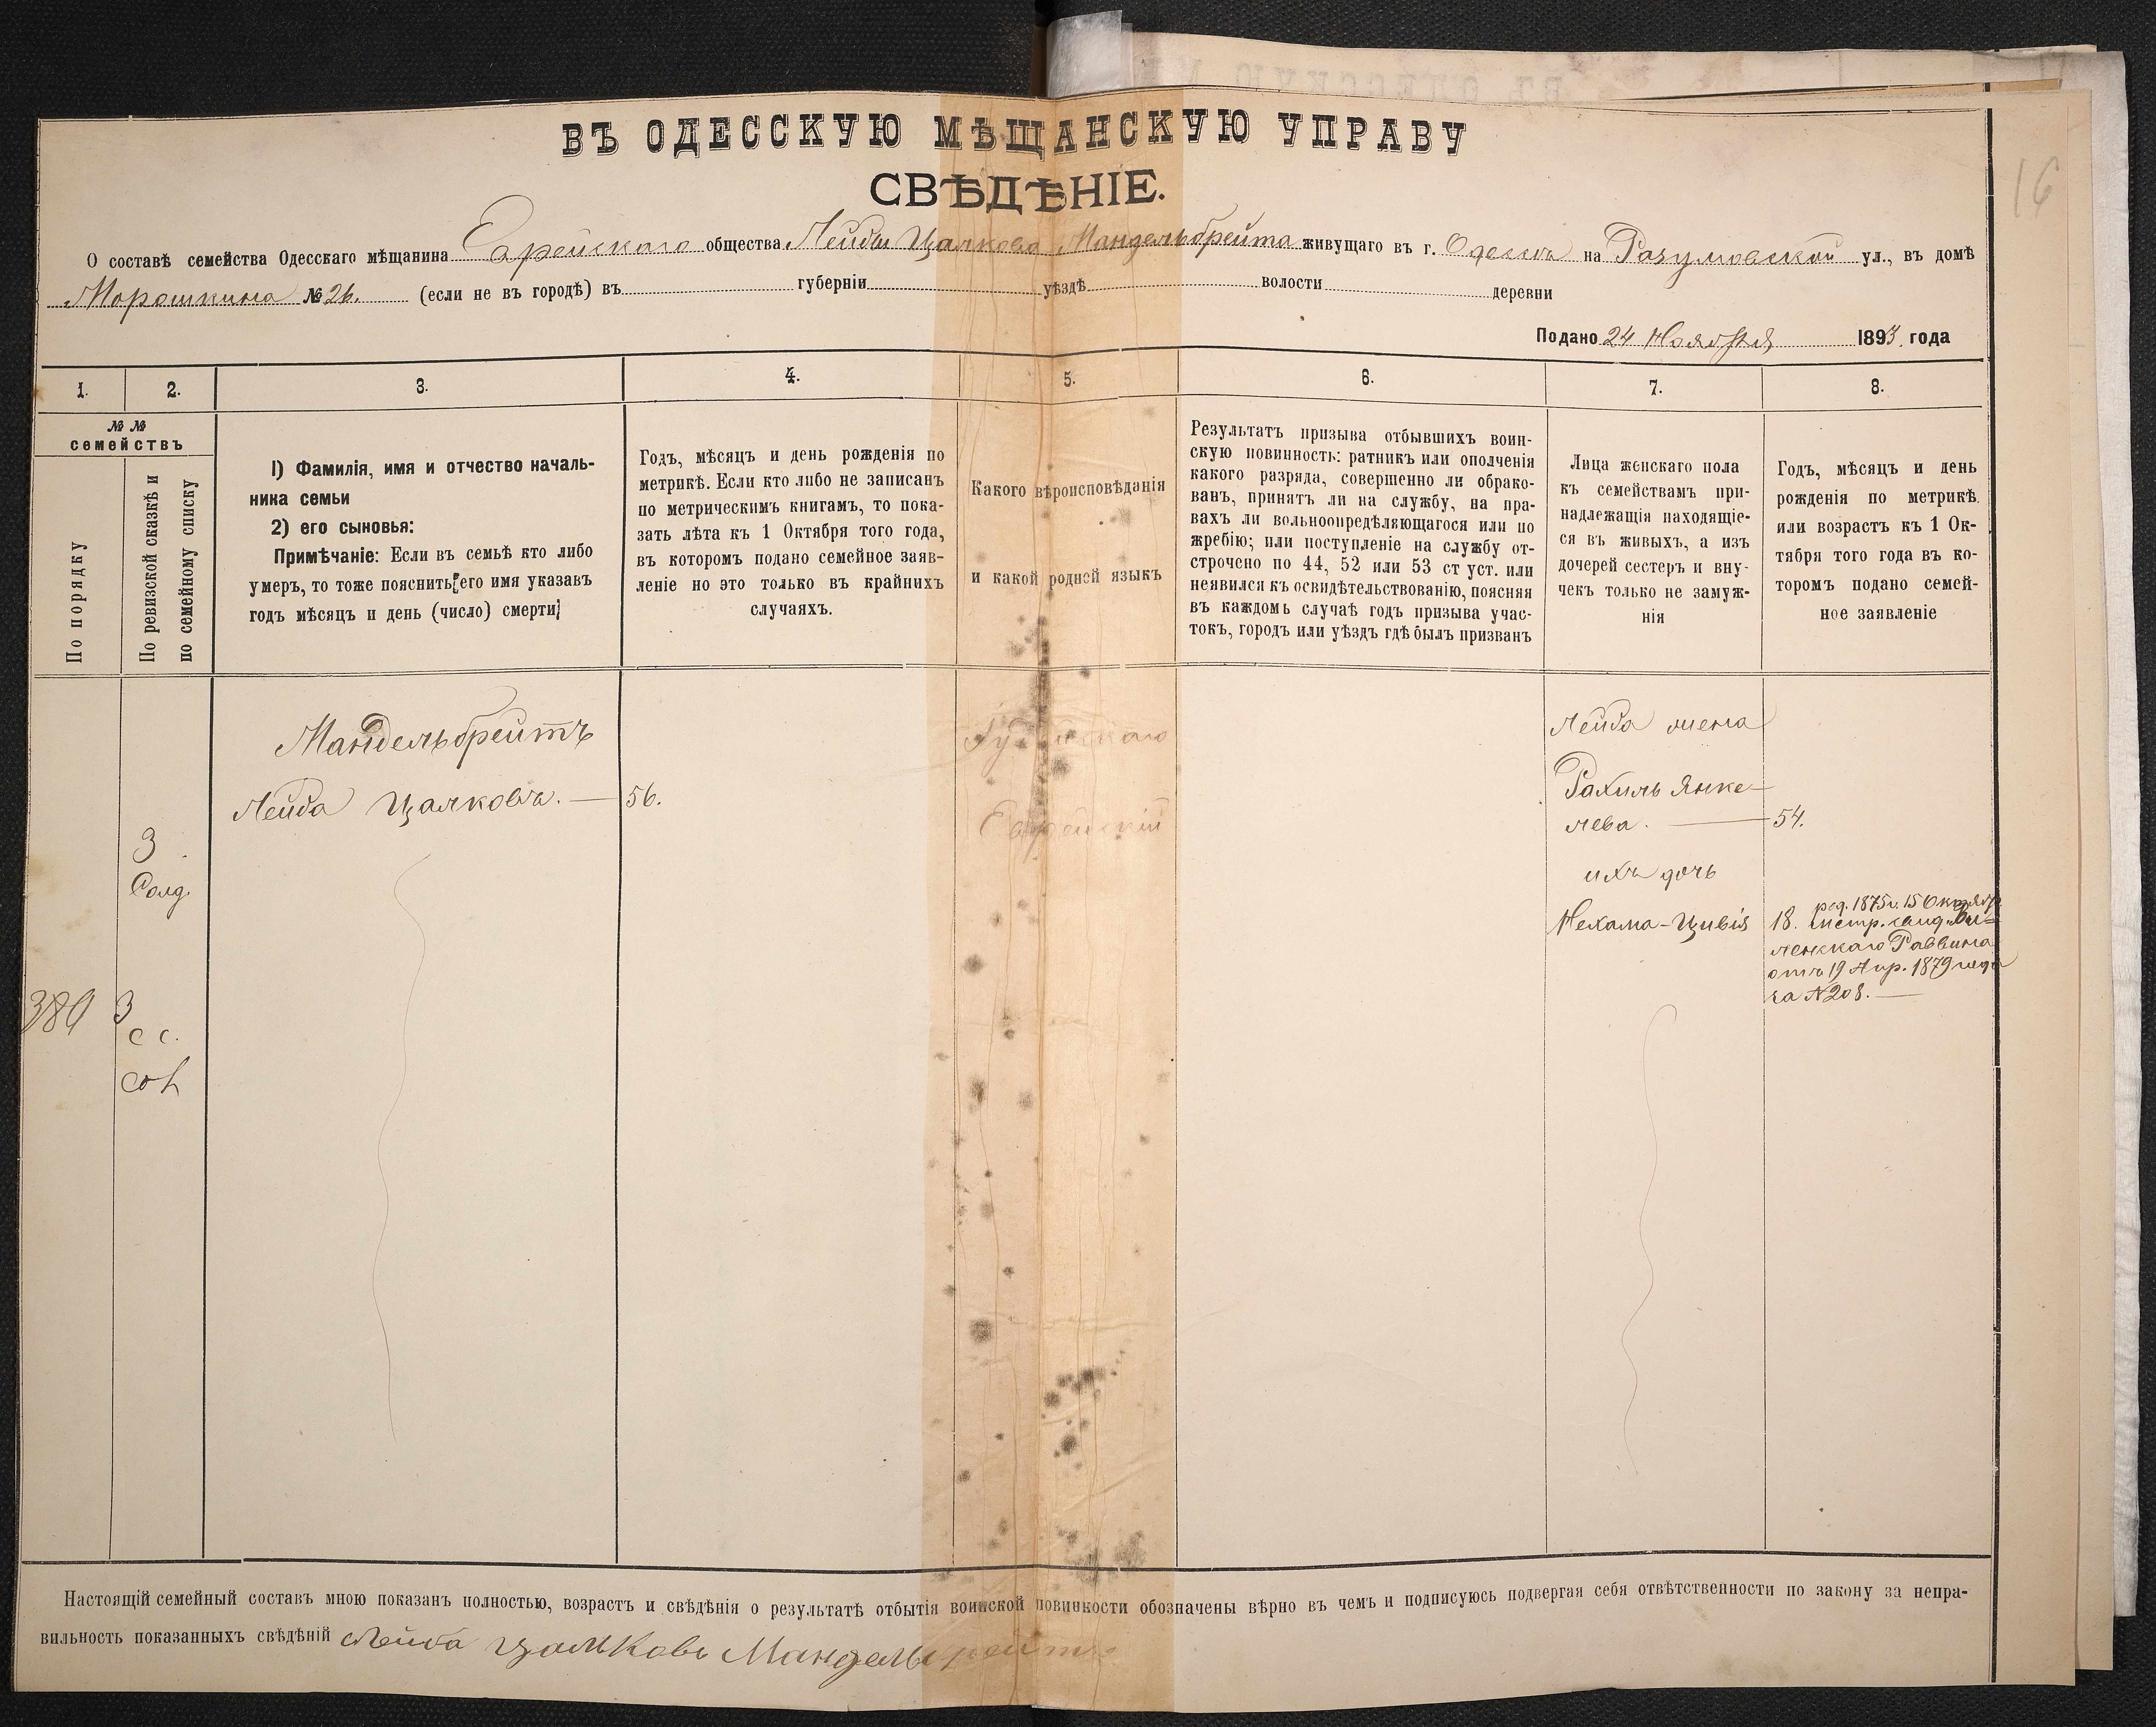 ВЪ ОДЕССКУЮ МѢЩАНСКУЮ УПРАВУ
СВѢДѢНІЕ.
О составѣ семейства Одесскаго мѣщанина Еврейскаго общества Лейбы Цалкова Мандельбрейта живущаго въ г. Одессѣ на Разумовской ул., въ домѣ
Морошкина № 26. (если не въ городѣ) въ губерніи уѣздѣ волости деревни
Подано 24 Ноября 1893 года
1. 2. 3. 4. 5. 6. 7. 8.
№ №
семействъ
По порядку
По ревизской сказкѣ и
по семейному списку
1) Фамилія, имя и отчество началь-
ника семьи
2) его сыновья:
Примѣчаніе: Если въ семьѣ кто либо
умеръ, то тоже пояснить его имя указавъ
годъ мѣсяцъ и день (число) смерти;
Годъ, мѣсяцъ и день рожденія по
метрикѣ. Если кто либо не записанъ
по метрическимъ книгамъ, то пока-
зать лѣта къ 1 Октября того года,
въ которомъ подано семейное заяв-
леніе но это только въ крайнихъ
случаяхъ.
Какого вѣроисповѣданія
и какой родной языкъ
Результатъ призыва отбывшихъ воин-
скую повинность: ратникъ или ополченія
какого разряда, совершенно ли обрако-
ванъ, принятъ ли на службу, на пра-
вахъ ли вольноопредѣляющагося или по
жребію; или поступленіе на службу от-
строчено по 44, 52 или 53 ст уст. или
неявился къ освидѣтельствованію, поясняя
въ каждомъ случаѣ годъ призыва учас-
токъ, городъ или уѣздъ гдѣ былъ призванъ
Лица женскаго пола
къ семействамъ при-
надлежащія находящіе-
ся въ живыхъ, а изъ
дочерей сестеръ и вну-
чекъ только не замуж-
нія
Годъ, мѣсяцъ и день
рожденія по метрикѣ
или возрастъ къ 1 Ок-
тября того года въ ко-
торомъ подано семей-
ное заявленіе
Мандельбрейтъ
Лейба Цалковъ. — 56.
3
Солд.
389 3
с с.
Іудейскаго
Еврейскій
Лейба жена
Рахиль Янке-
лева. — 54.
ихъ дочь
Нехама-Цивія
род. 1875 г. 15 Октября
18. метр. свид. Ви-
ленскаго Раввина
отъ 19 Апр. 1879 года
за № 208. —
Настоящій семейный составъ мною показанъ полностью, возрастъ и свѣдѣнія о результатѣ отбытія воинской повинности обозначены вѣрно въ чемъ и подписуюсь подвергая себя отвѣтственности по закону за непра-
вильность показанныхъ свѣдѣній Лейба Цальковъ Мандельбрейтъ
16